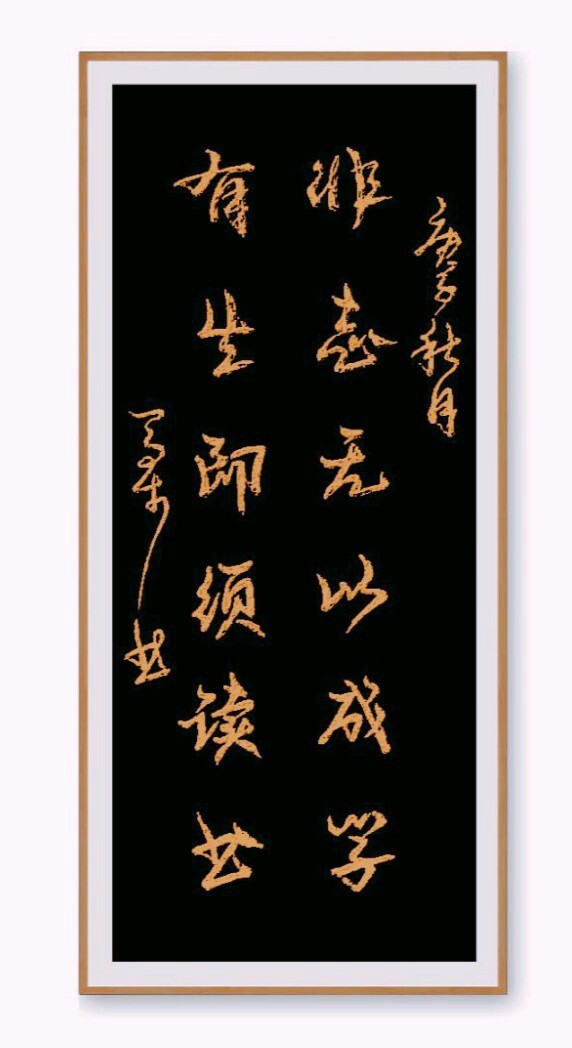 庚子秋月
非志无以成学
有生即须读书
书